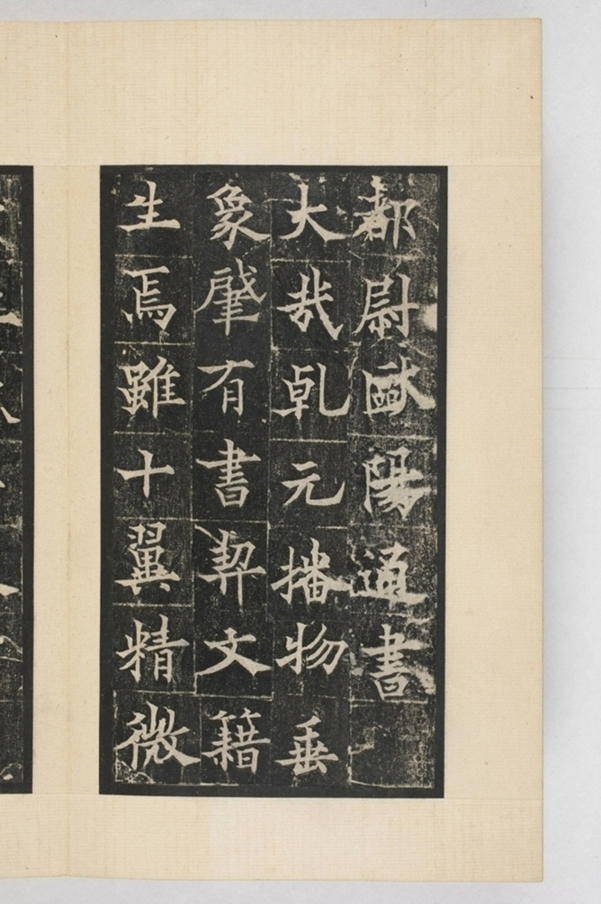 都尉歐陽通書
大哉乹元播物垂
象肇有書契文籍
生焉雖十翼精微